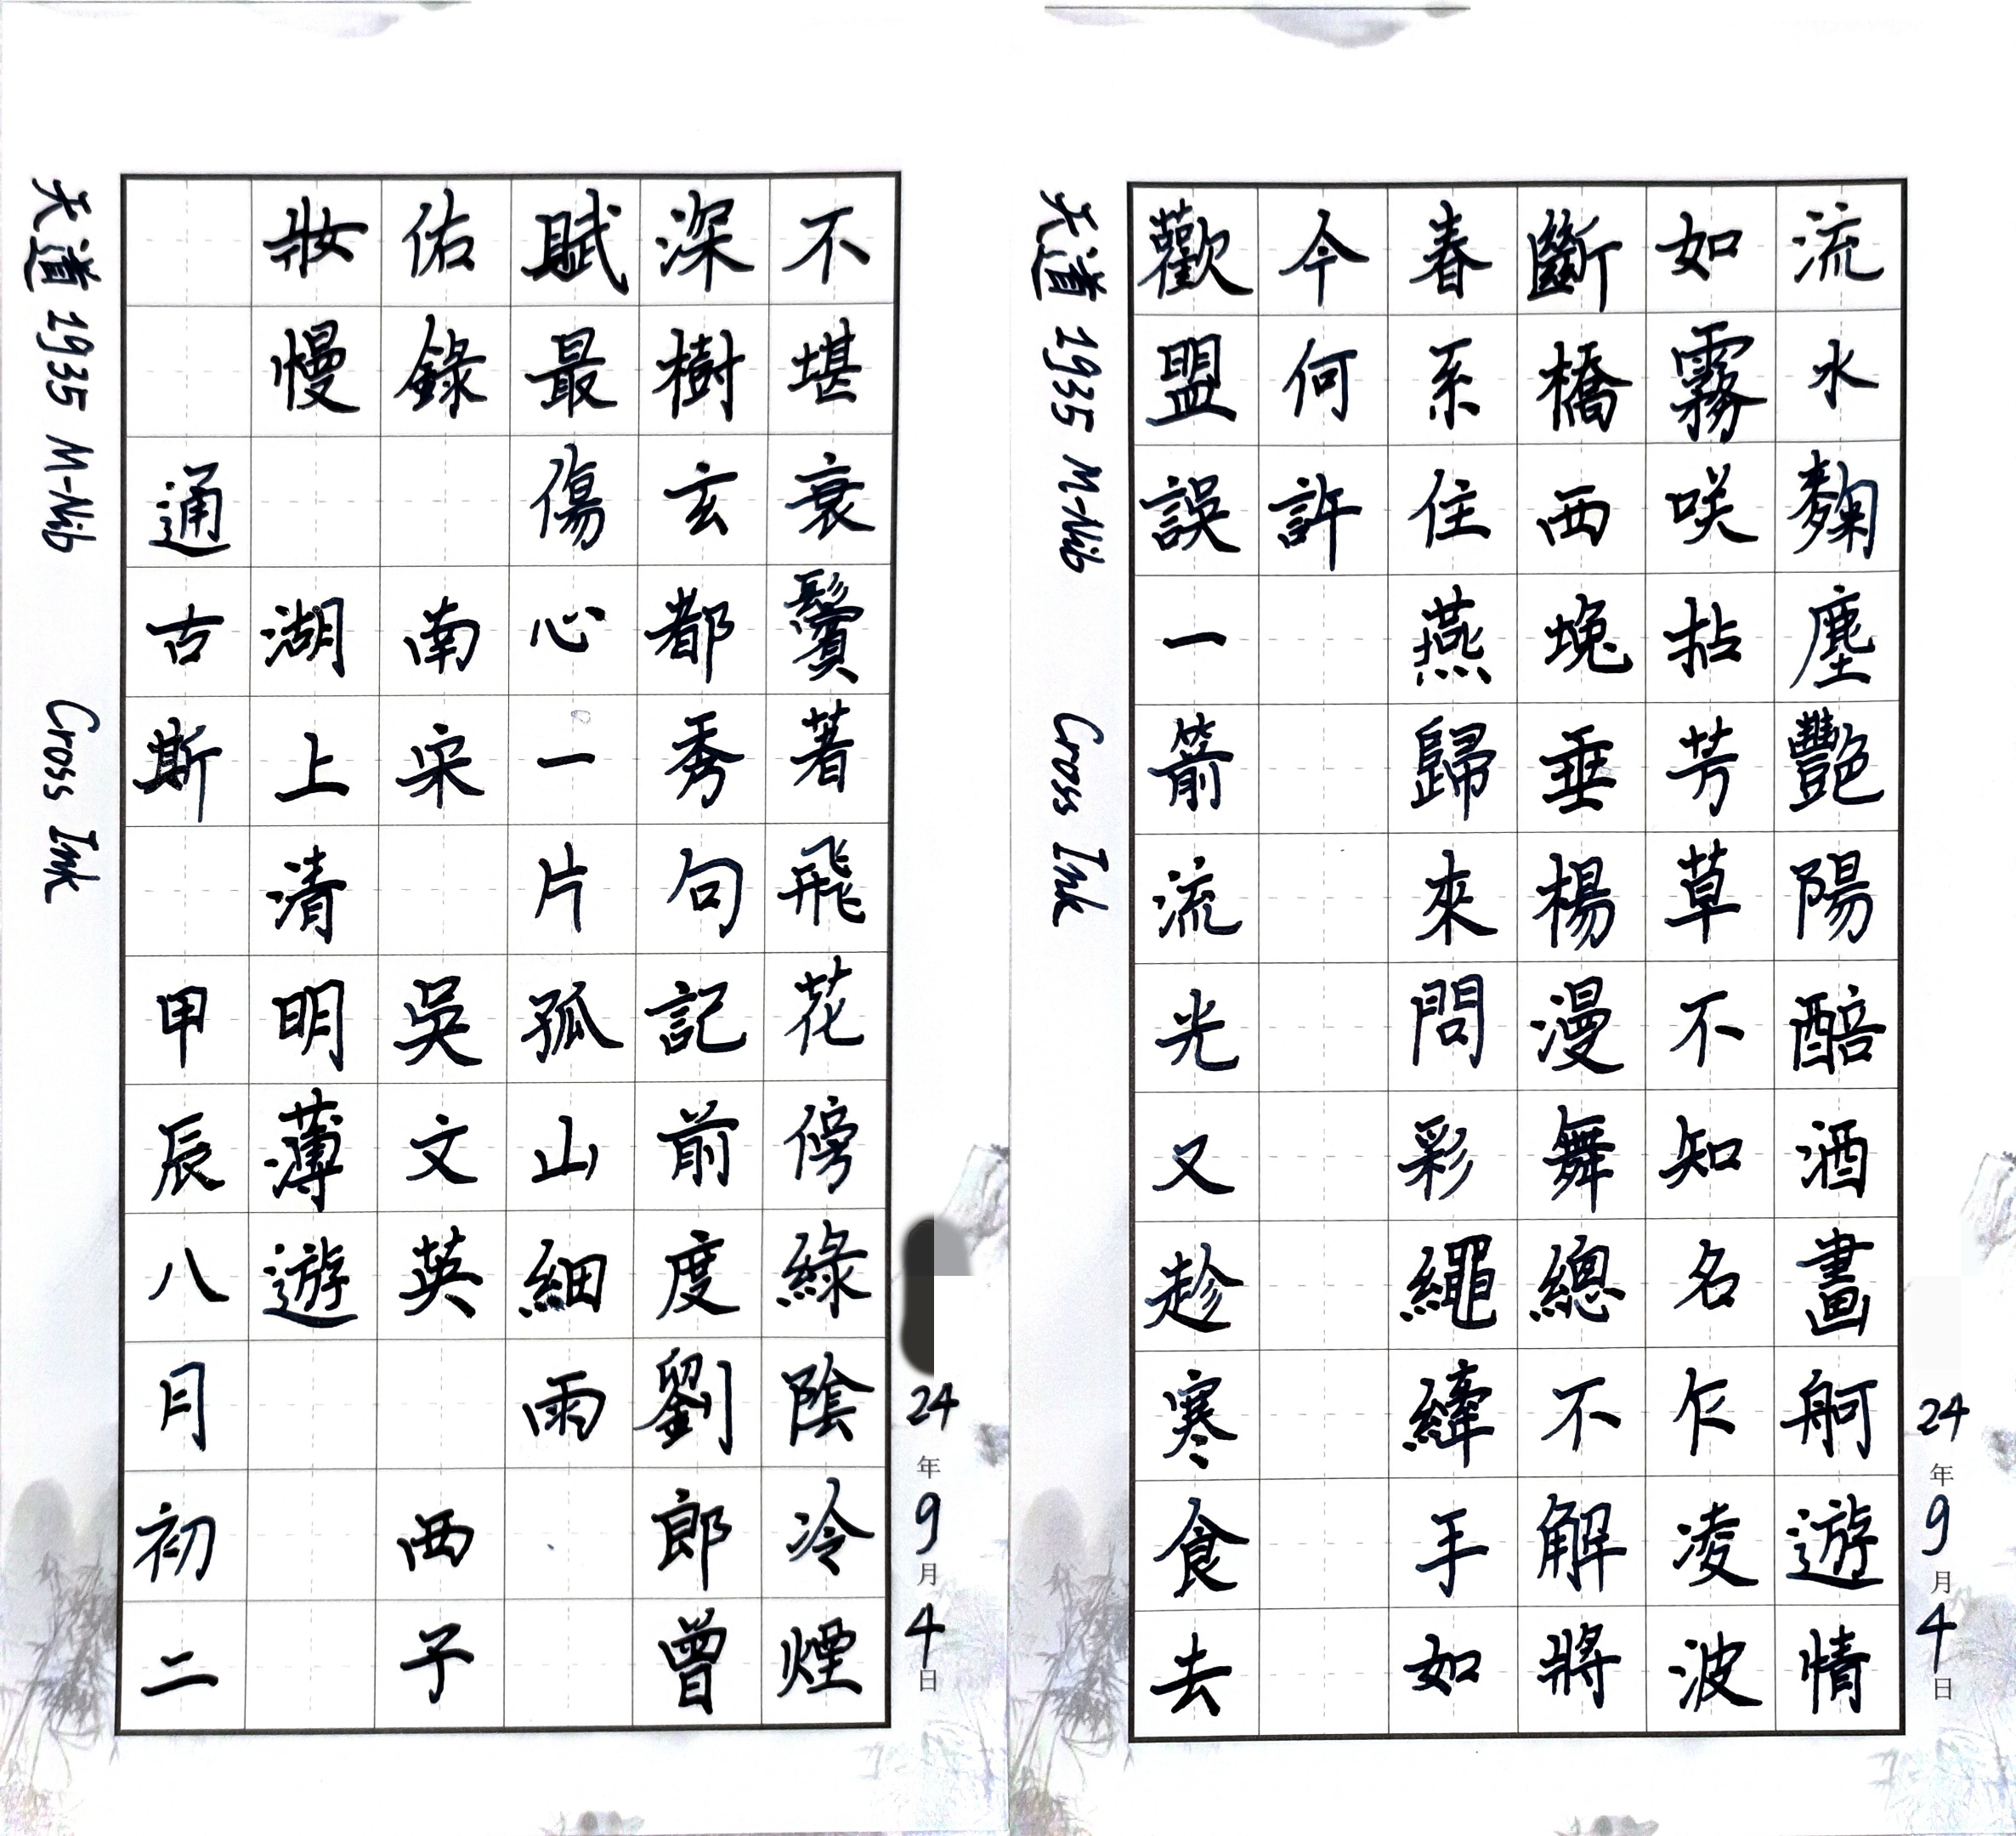 流水麴塵豔陽醅酒畫舸遊情
如霧咲拈芳草不知名乍凌波
斷橋西堍垂楊漫舞總不解將
春系住燕歸來問彩繩縴手如
今何許
歡盟誤一箭流光又趁寒食去
天道 1935 M-Nib Cross Ink
24年9月4日
不堪衰鬢著飛花傍綠陰冷煙
深樹玄都秀句記前度劉郎曾
賦最傷心一片孤山細雨
佑錄 南宋 吳文英 西子
妝慢 湖上清明薄遊
通古斯 甲辰八月初二
天道 1935 M-Nib Cross Ink
24年9月4日